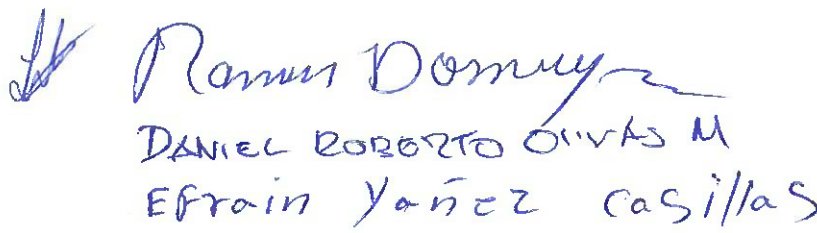 Ramon Doming
DANIEL ROBERTO OlivAS M
EFrain Yañez casillas